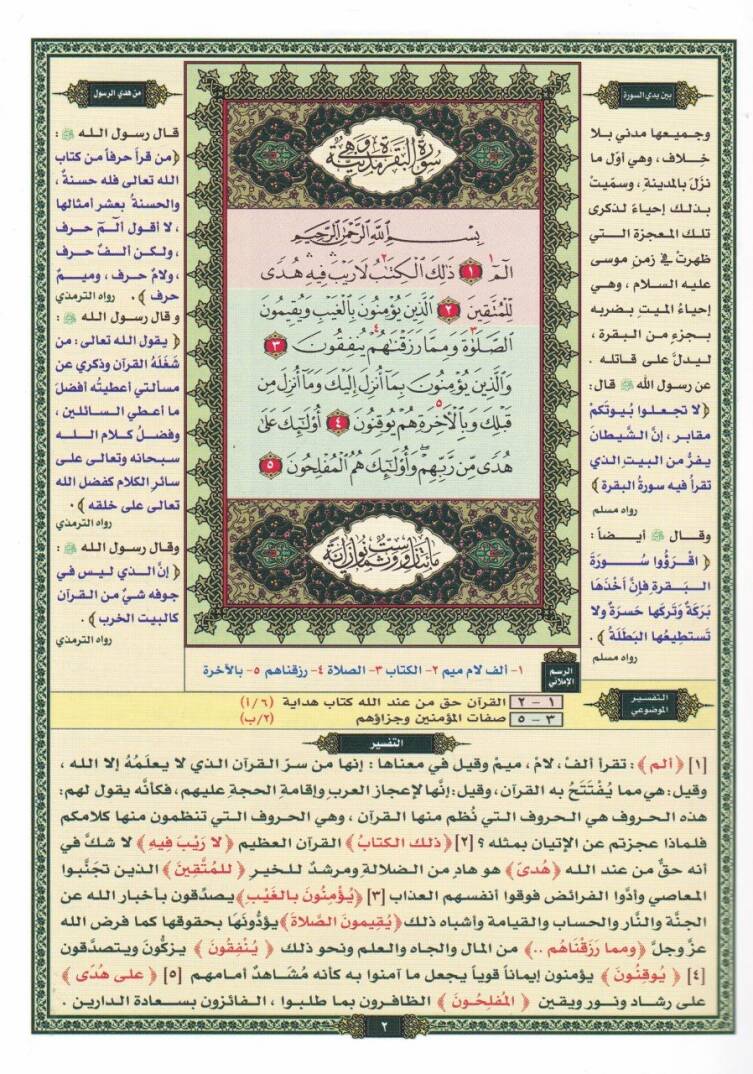 بين يدي السورة
وجميعها مدني بلا
خلاف ، وهي أوّل ما
نزَلَ بالمدينةِ ، وسمّيتْ
بذلك إحياءً لذكرى
تلك المعجزة التـي
ظهرتْ في زمنِ موسى
عليه السلام ، وهي
إحياءُ الميتِ بضربه
بجزءٍ من البقرة ،
ليدلَّ على قاتله .
عن رسول الله ﷺ قال:
﴿ لا تجعلوا بُيوتَكمْ
مقابر ، إنَّ الشَّيطانَ
يفرُّ من البيتِ الذي
تقرأ فيه سورةُ البقرة ﴾
رواه مسلم
وقـال ﷺ أيضـاً :
﴿ اقْرَؤُوا سُـورَةَ
البَـقرةِ فإنَّ أَخذَهَا
بَرَكَةٌ وَتَركَها حَسرَةٌ ولا
تَستطِيعُها البَطَلَةُ ﴾ .
رواه مسلم
سُورَةُ البَقَرَةِ وَهِيَ مَدَنِيَّة
بِسْمِ اللَّهِ الرَّحْمَٰنِ الرَّحِيمِ
الٓمٓ ١ ذَٰلِكَ الْكِتَٰبُ لَا رَيْبَ ۛ فِيهِ ۛ هُدًى
لِّلْمُتَّقِينَ ٢ الَّذِينَ يُؤْمِنُونَ بِالْغَيْبِ وَيُقِيمُونَ
الصَّلَوٰةَ وَمِمَّا رَزَقْنَٰهُمْ يُنفِقُونَ ٣
وَالَّذِينَ يُؤْمِنُونَ بِمَا أُنزِلَ إِلَيْكَ وَمَا أُنزِلَ مِن
قَبْلِكَ وَبِالْأَخِرَةِ هُمْ يُوقِنُونَ ٤ أُوْلَٰئِكَ عَلَىٰ
هُدًى مِّن رَّبِّهِمْ ۖ وَأُوْلَٰئِكَ هُمُ الْمُفْلِحُونَ ٥
مائتان وست وثمانون آية
من هدي الرسول
قال رسول الله ﷺ :
﴿ من قرأ حرفاً من كتاب
الله تعالى فله حسنةٌ ،
والحسنةُ بعشر أمثالها
، لا أقول ألٓمٓ حرف
، ولكن ألفٌ حرف
، ولامٌ حرف ، وميمٌ
حرف ﴾ . رواه الترمذي
و قال رسول الله ﷺ :
﴿ يقول الله تعالى: من
شَغَلَهُ القرآن وذكري عن
مسألتي أعطيتُه أفضلَ
ما أعطي السـائلين ،
وفضلُ كـلام اللـه
سبحانه وتعالى على
سائرِ الكلام كفضل الله
تعالى على خلقه ﴾ .
رواه الترمذي
وقال رسول الله ﷺ :
﴿ إنَّ الذي ليس في
جوفه شيٌ من القرآن
كالبيت الخرب ﴾ .
رواه الترمذي
الرسم الإملائي
١- ألف لام ميم ٢- الكتاب ٣- الصلاة ٤- رزقناهم ٥- بالآخرة
التفسير الموضوعي
١ - ٢ القرآن حق من عند الله كتاب هداية (٦/أ)
٣ - ٥ صفات المؤمنين وجزاؤهم (٢/ب)
التفسير
[١] ﴿ ألم ﴾ : تقرأ ألفْ، لامْ ، ميمْ وقيل في معناها : إنها من سرّ القرآن الذي لا يعلَمُهُ إلا الله ،
وقيل: هي مما يُفْتَتَحُ به القرآن، وقيل: إنَّها لإعجاز العربِ وإقامةِ الحجةِ عليهم ، فكأنَّه يقول لهم:
هذه الحروف هي الحروف التي نُظم منها القرآن ، وهي الحروف التـي تنظمون منها كلامكم
فلماذا عجزتم عن الإتيان بمثله ؟ [٢] ﴿ ذلك الكتابُ ﴾ القرآن العظيم ﴿ لا رَيْبَ فيهِ ﴾ لا شكَّ في
أنه حقٌّ من عند الله ﴿ هُدىً ﴾ هو هادٍ من الضلالة ومرشدٌ للخير ﴿ للمُتَّقِينَ ﴾ الذين تجَنَّبوا
المعاصي وأدَّوا الفرائضَ فوقوا أنفسهم العذاب [٣] ﴿ يُؤْمِنُونَ بالغَيْبِ ﴾ يصدِّقون بأخبار الله عن
الجنَّة والنَّار والحساب والقيامة وأشباه ذلك ﴿ يُقِيمونَ الصَّلاةَ ﴾ يؤدُّونَهَا بحقوقها كما فرض الله
عزَّ وجلَّ ﴿ ومما رَزَقْنَاهُم .. ﴾ من المال والجاه والعلم ونحو ذلك ﴿ يُنْفِقُونَ ﴾ يزكُّونَ ويتصدَّقون
[٤] ﴿ يُوقِنُونَ ﴾ يؤمنون إيماناً قوياً يجعل ما آمنوا به كأنه مُشَاهَدٌ أمامهم [٥] ﴿ على هُدًى ﴾
على رشادٍ ونور ويقين ﴿ المُفلِحُونَ ﴾ الظافرون بما طلبوا ، الفائزون بسعادة الدارين .
٢